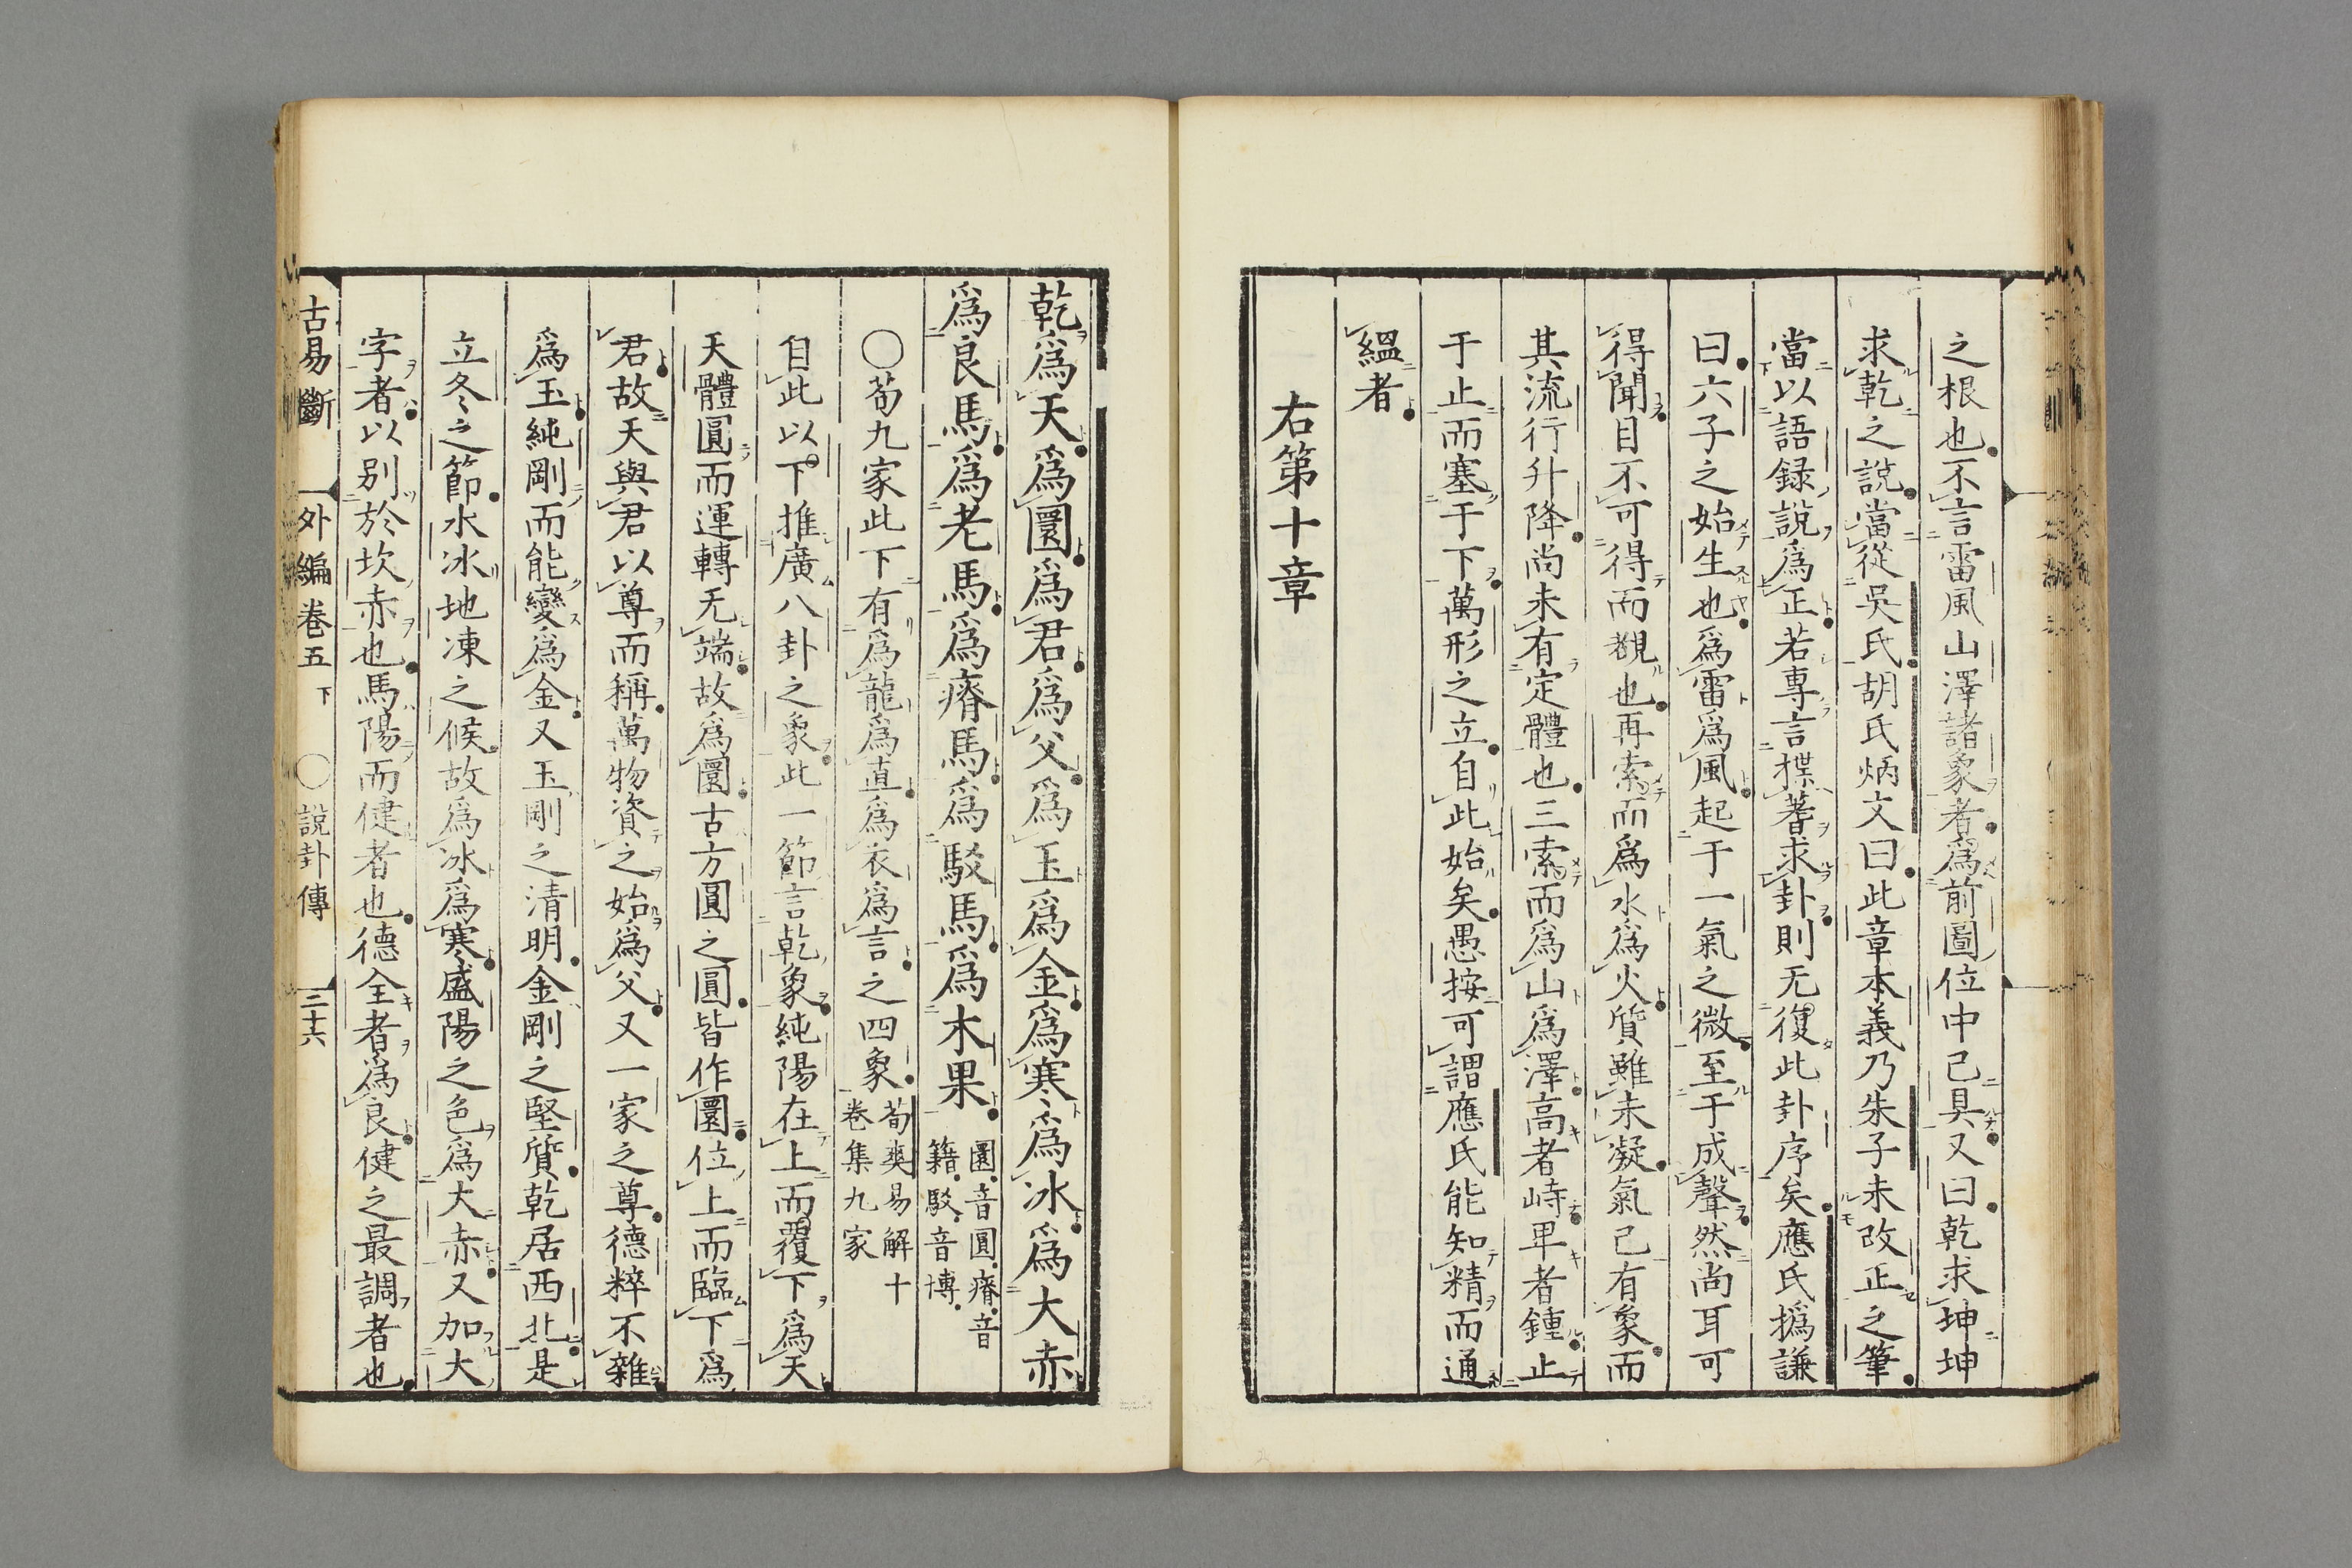 之根也不言雷風山澤諸象者爲前圖位中已具又曰乾求坤坤
求乾之說當從吳氏胡氏炳文曰此章本義乃朱子未改正之筆
當以語録說爲正若專言揲蓍求卦則无復此卦序矣應氏撝謙
曰六子之始生也爲雷爲風起于一氣之微至于成聲然尚耳可
得聞目不可得而覩也再索而爲水爲火質雖未凝氣已有象而
其流行升降尚未有定體也三索而爲山爲澤高者峙卑者鍾止
于止而塞于下萬形之立自此始矣愚按可謂應氏能知精而通
縕者
右第十章
乾爲天爲圜爲君爲父爲玉爲金爲寒爲冰爲大赤
爲良馬爲老馬爲瘠馬爲駁馬爲木果 圜音圓瘠音
籍駁音博
○荀九家此下有爲龍爲直爲衣爲言之四象 荀爽易解十
卷集九家
自此以下推廣八卦之象此一節言乾象純陽在上而覆下爲天
天體圓而運轉无端故爲圜古方圓之圓皆作圜位上而臨下爲
君故天與君以尊而稱萬物資之始爲父又一家之尊德粹不雜
爲玉純剛而能變爲金又玉剛之清明金剛之堅質乾居西北是
立冬之節水冰地凍之候故爲冰爲寒盛陽之色爲大赤又加大
字者以别於坎赤也馬陽而健者也德全者爲良健之最調者也
古易斷 外編卷五下 ○說卦傳 三十六